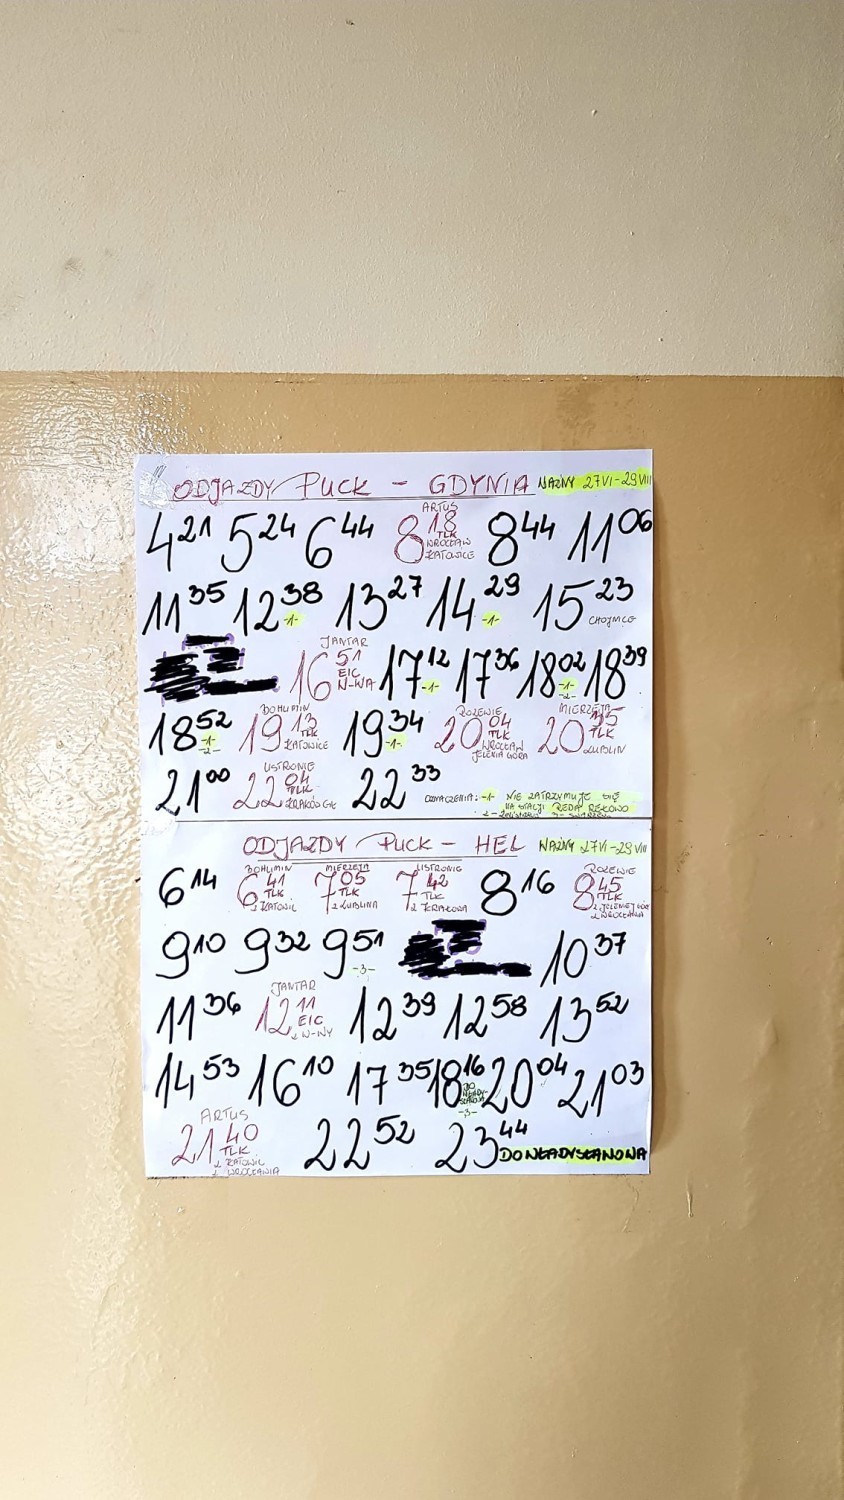 ODJAZDY PUCK - GDYNIA WAŻNY 27 VI - 29 VIII
4 21 5 24 6 44 8 18 ARTUS TLK WROCŁAW KATOWICE 8 44 11 06
11 35 12 38 -1- 13 27 14 29 -1- 15 23 CHOJNICE
16 51 JANTAR EIC W-WA 17 12 -1- 17 36 18 02 -1- -2- 18 39
18 52 -1- -2- 19 13 BOHUMIN TLK KATOWICE 19 34 -1- 20 04 ROZEWIE TLK WROCŁAW JELENIA GÓRA 20 MIERZEJA TLK LUBLIN
21 00 22 04 USTRONIE TLK KRAKÓW GŁ 22 33 OZNACZENIA: -1- NIE ZATRZYMUJE SIĘ
NA STACJI REDA REKOWO
ODJAZDY PUCK - HEL WAŻNY 27 VI - 29 VIII
6 14 6 41 BOHUMIN TLK Z KATOWIC 7 05 MIERZEJA TLK Z LUBLINA 7 42 USTRONIE TLK Z KRAKOWA 8 16 8 45 ROZEWIE TLK Z JELENIEJ GÓRY Z WROCŁAWIA
9 10 9 32 9 51 -3- 10 37
11 36 12 11 JANTAR EIC Z W-WY 12 39 12 58 13 52
14 53 16 10 17 35 18 16 DO WŁADYSŁAWOWA -3- 20 04 21 03
21 40 ARTUS TLK Z KATOWIC Z WROCŁAWIA 22 52 23 44 DO WŁADYSŁAWOWA